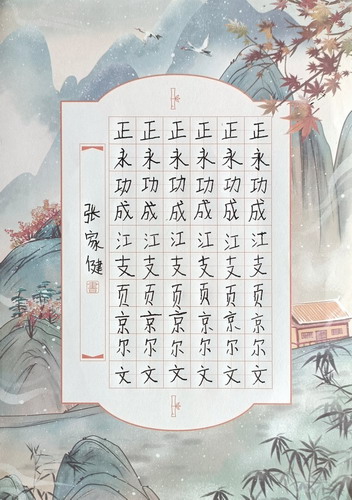 正永功成江支页京尔文
正永功成江支页京尔文
正永功成江支页京尔文
正永功成江支页京尔文
正永功成江支页京尔文
正永功成江支页京尔文
张家健
書